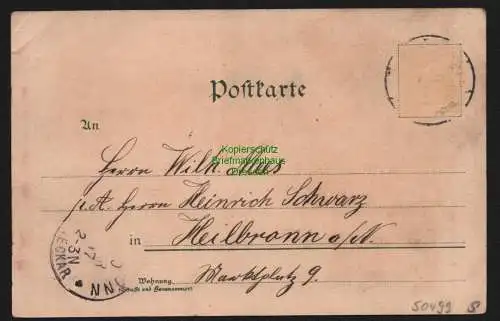 Postkarte
Kopierschutz
Briefmarkenhaus
An
Herrn Wilh. Mees
p. A. Herrn Heinrich Schwarz
in Heilbronn a/N.
Wohnung Marktplatz 9.
(Straße und Hausnummer)
NECKAR
2-3N
50499 S